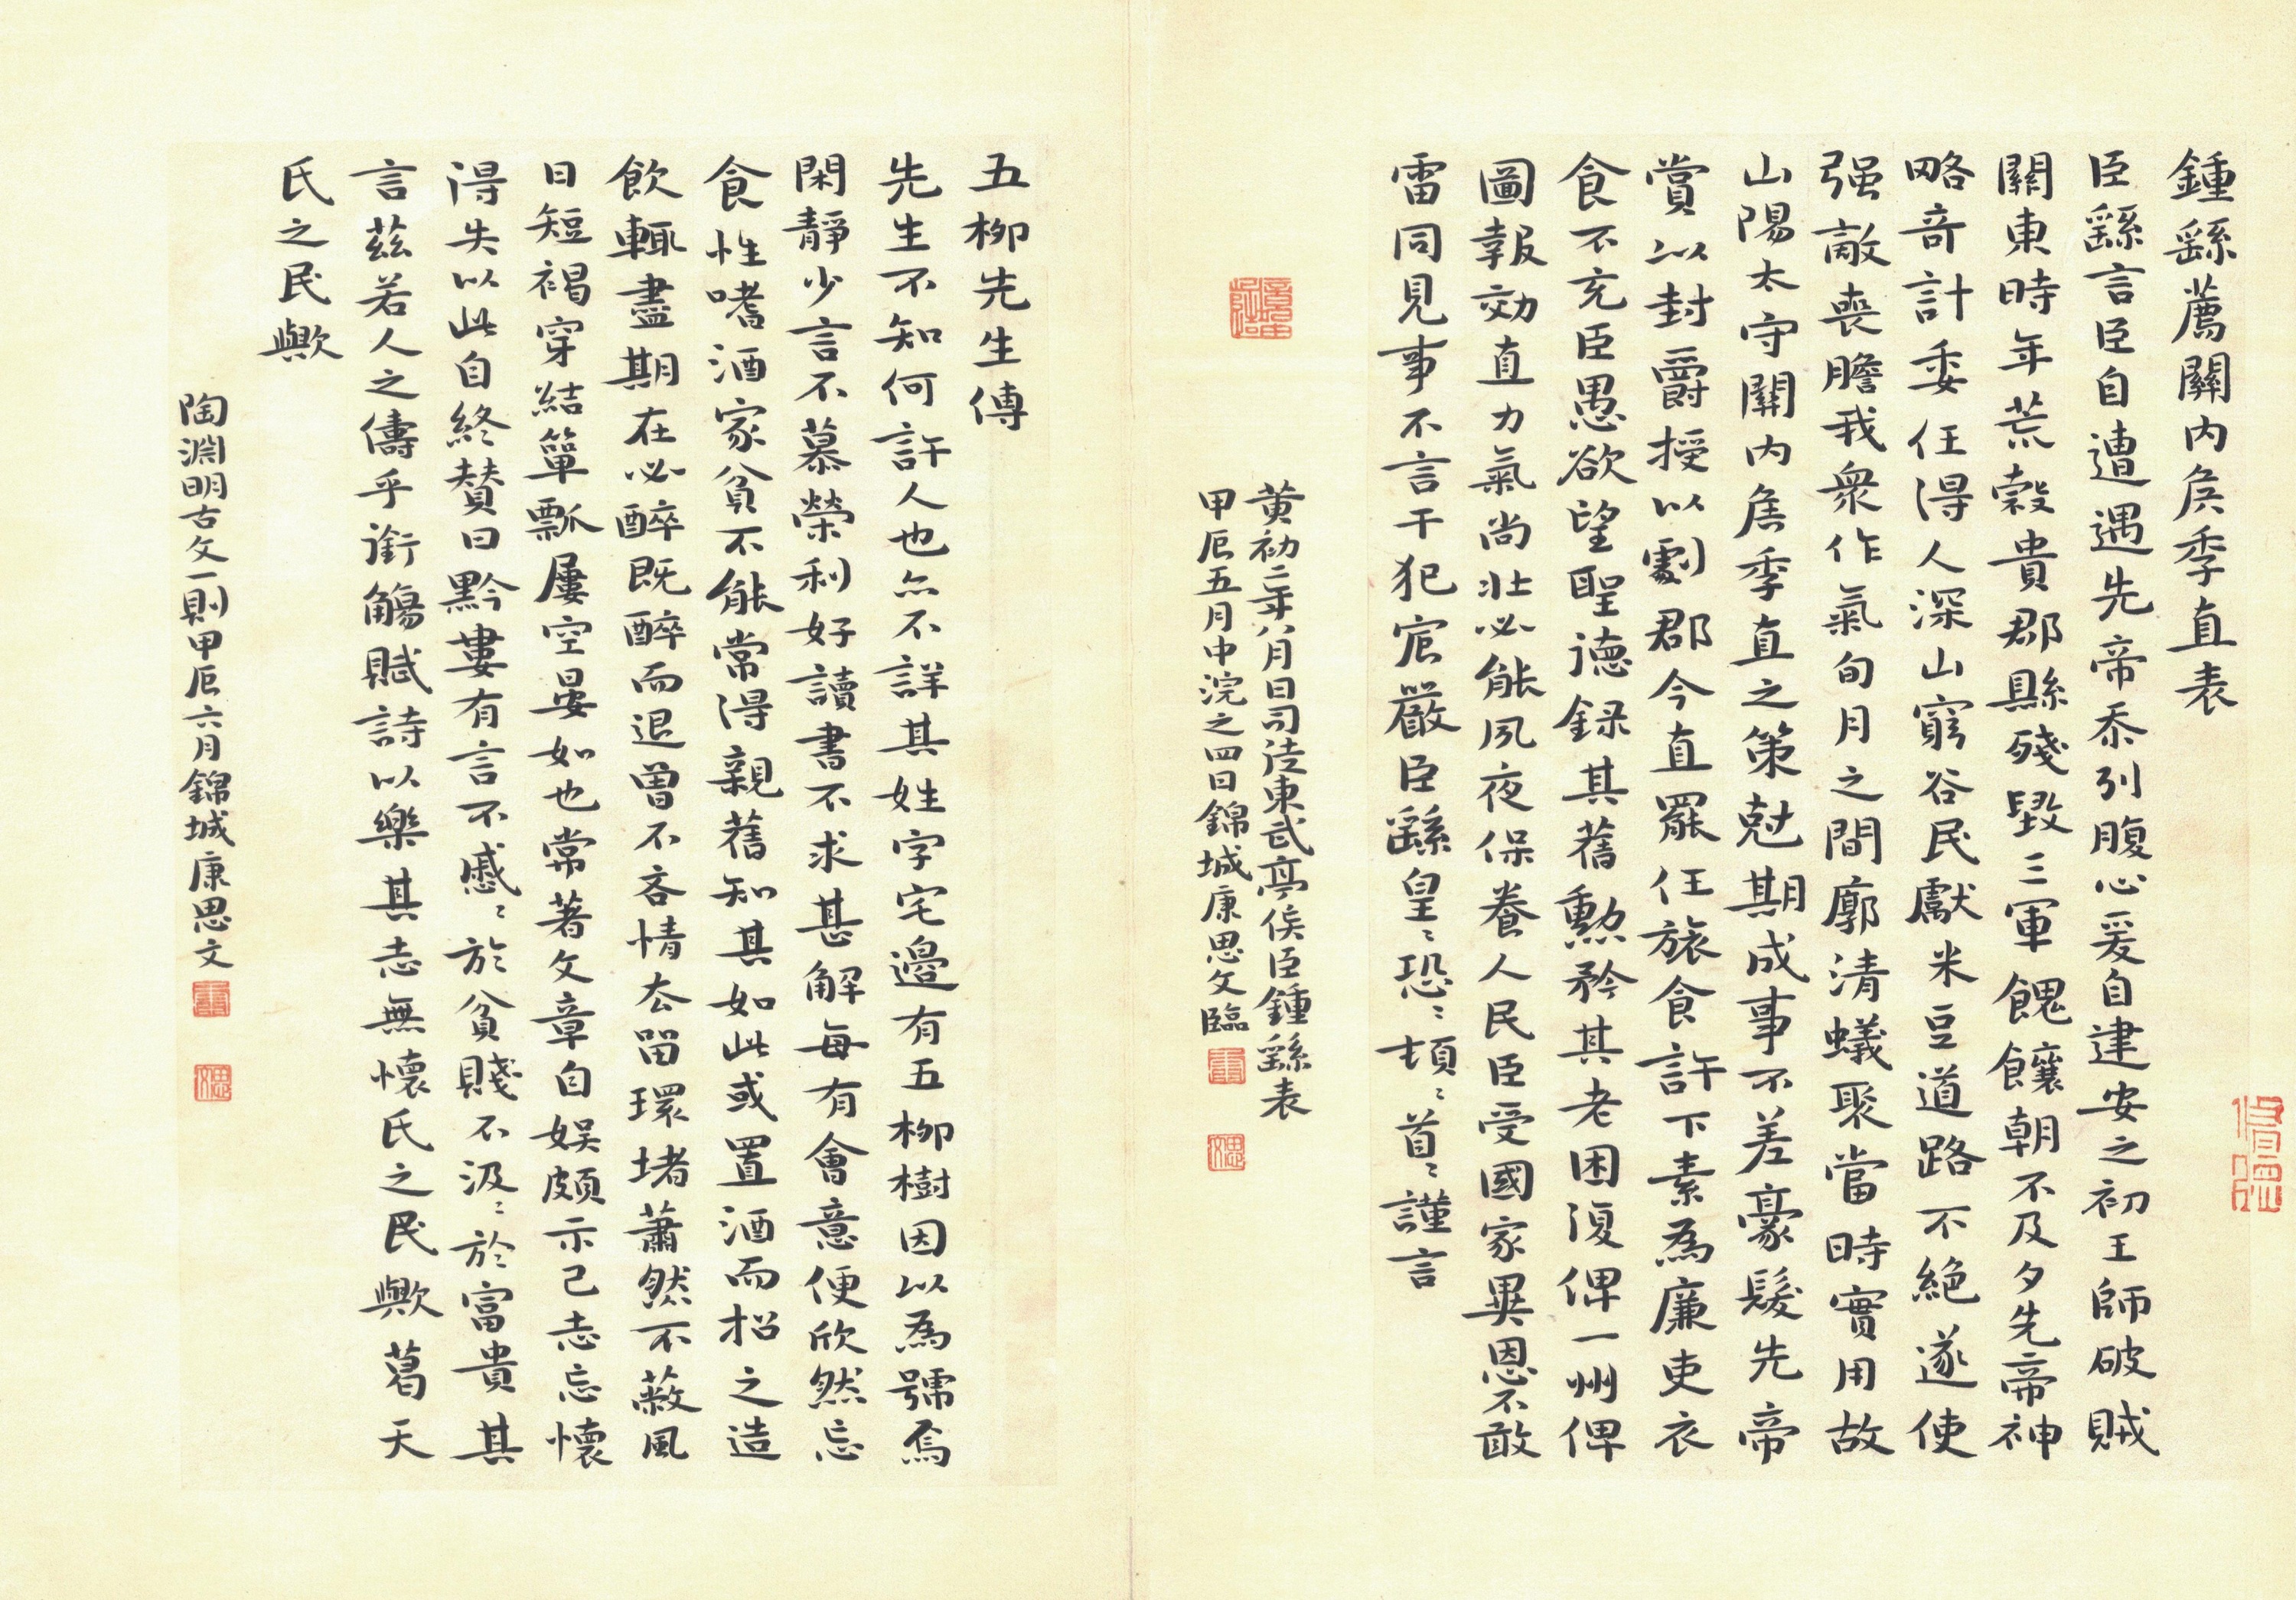 鍾繇薦關内侯季直表
臣繇言臣自遭遇先帝忝列腹心爰自建安之初王師破賊
關東時年荒穀貴郡縣殘毀三軍餽饟朝不及夕先帝神
略奇計委任得人深山窮谷民獻米豆道路不絕遂使
强敵喪膽我衆作氣旬月之間廓清蟻聚當時實用故
山陽太守關内侯季直之策尅期成事不差豪髮先帝
賞以封爵授以劇郡今直罷任旅食許下素為廉吏衣
食不充臣愚欲望聖德録其舊勲矜其老困復俾一州俾
圖報効直力氣尚壯必能夙夜保養人民臣受國家異恩不敢
雷同見事不言干犯宸嚴臣繇皇〻恐〻頓〻首〻謹言
黄初二年八月日司徒東武亭侯臣鍾繇表
甲辰五月中浣之四日錦城康思文臨
五柳先生傳
先生不知何許人也亦不詳其姓字宅邊有五柳樹因以為號焉
閑靜少言不慕榮利好讀書不求甚解每有會意便欣然忘
食性嗜酒家貧不能常得親舊知其如此或置酒而招之造
飲輒盡期在必醉既醉而退曾不吝情去留環堵蕭然不蔽風
日短褐穿結簞瓢屢空晏如也常著文章自娱頗示己志忘懷
得失以此自終贊曰黔婁有言不戚〻於貧賤不汲〻於富貴其
言茲若人之儔乎銜觴賦詩以樂其志無懷氏之民歟葛天
氏之民歟
陶淵明古文一則甲辰六月錦城康思文